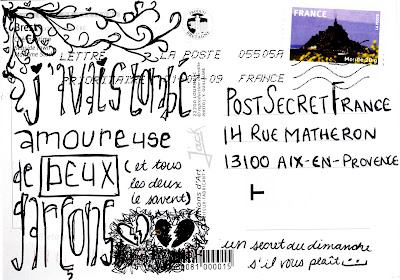 Brest
j'suis tombé
amoureuse
de DEUX
garçons
(et tous
les deux
le savent)
LETTRE
LA POSTE
05505A
PRIORITAIRE
FRANCE
FRANCE
Jack
POSTSECRETFRANCE
14 RUE MATHERON
13100 AIX-EN-PROVENCE
un secret du dimanche
s'il vous plaît
081 000015